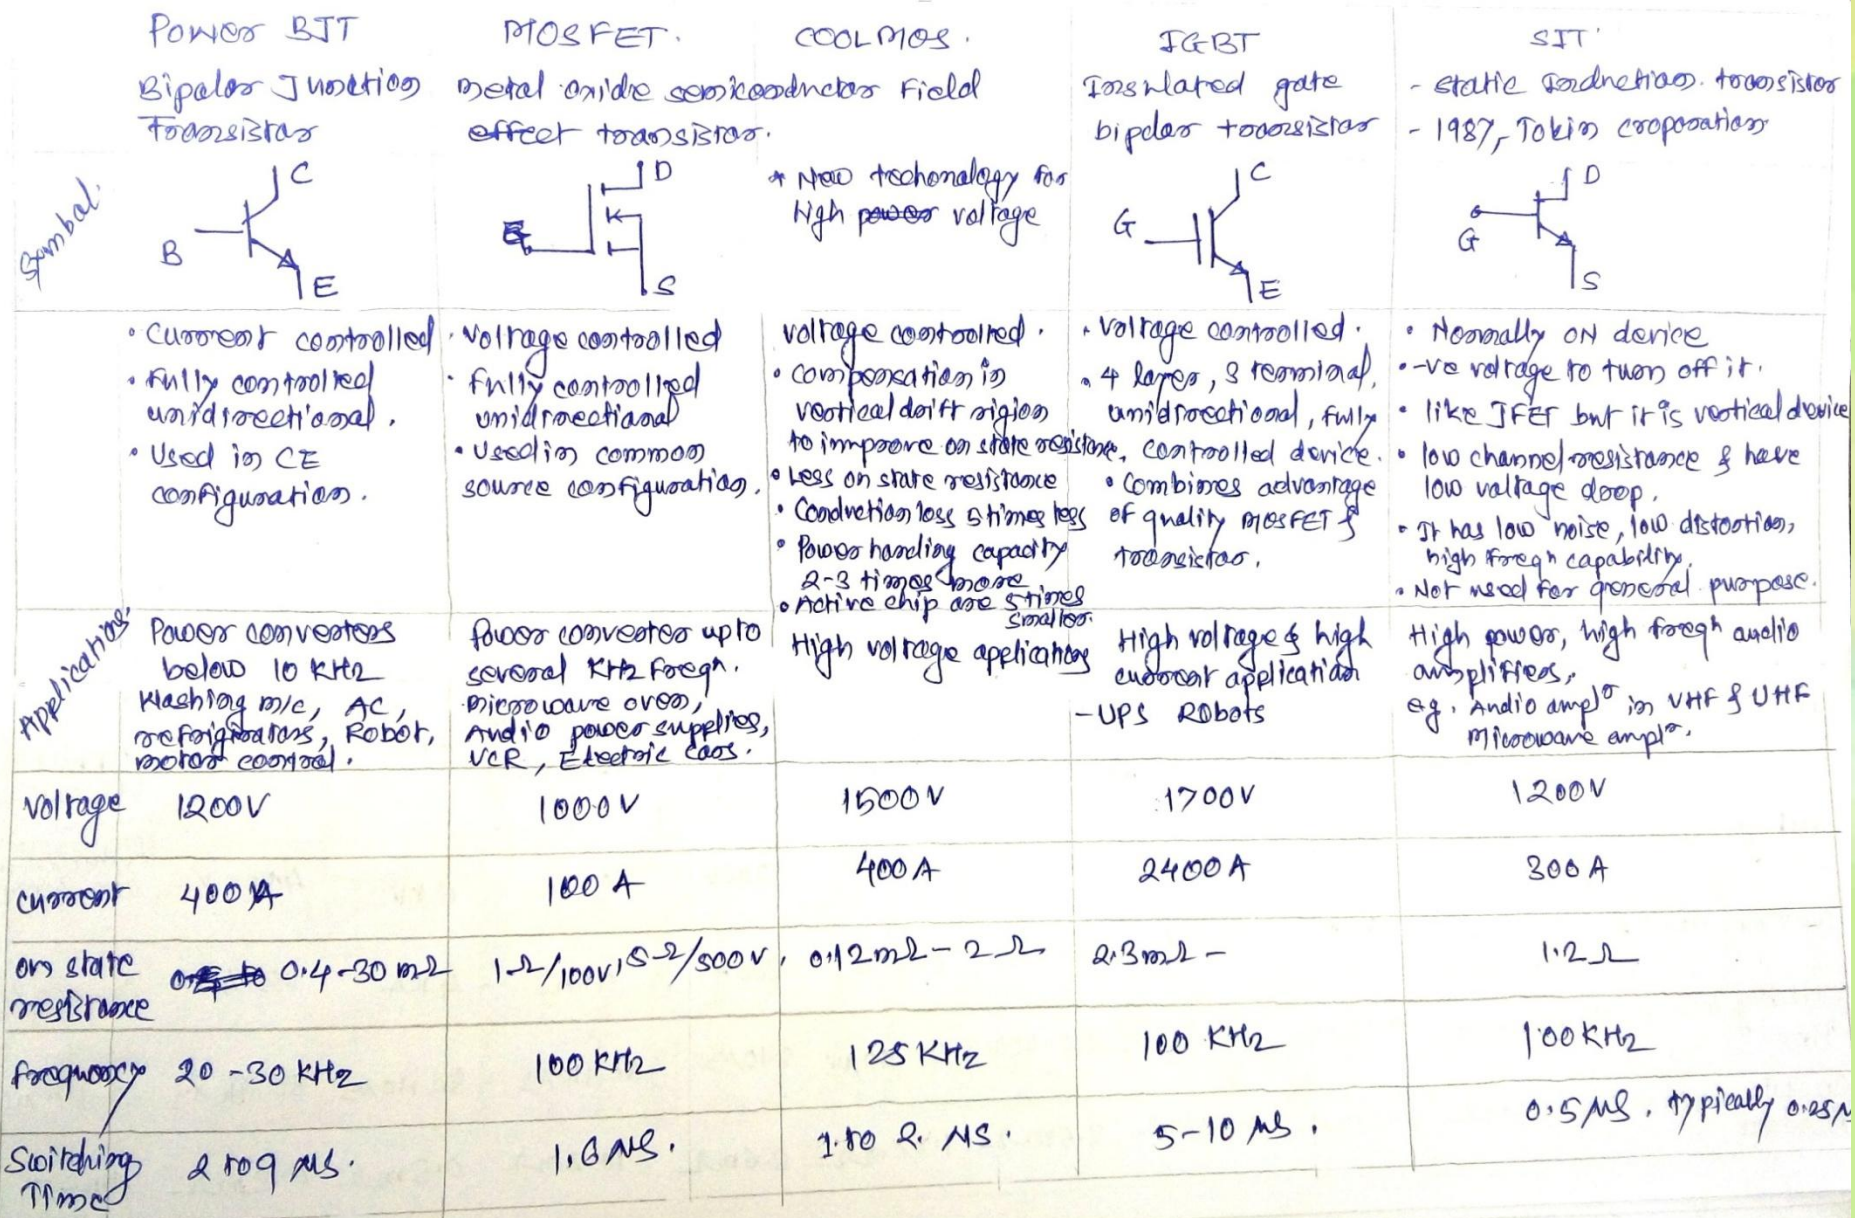 Power BJT
Bipolar Junction
Transistor
MOSFET.
Metal oxide semiconductor Field
effect transistor.
COOLMOS.
* New techonology for
high power voltage
IGBT
Insulated gate
bipolar transistor
SIT
- static Induction transistor
- 1987, Tokin croporation
Symbal.
B
C
E
D
S
G
C
E
G
D
S
• Current controlled
• Fully controlled
unidirectional.
• Used in CE
configuration.
• Voltage controlled
• fully controlled
unidirectional
• Used in common
source configuration.
voltage controlled.
• compensation in
vertical drift rigion
to immprove on state resistance.
• Less on state resistance
• Conduction loss 5 times less
• Power handling capacity
2-3 times more
• Active chip are 5 times
smaller.
• Voltage controlled.
• 4 layer, 3 terminal,
unidirectional, fully
controlled device.
• Combines advantage
of quality MOSFET &
transistor.
• Normally ON device
• -ve voltage to turn off it.
• like JFET but it is vertical device
• low channel resistance & have
low voltage drop.
• It has low noise, low distortion,
high freqn capability.
• Not used for general purpose.
Applications
Power converters
below 10 KHz
Washing m/c, AC,
refrigirators, Robot,
motor control.
Power converter upto
several KHz freqn.
Microwave oven,
Audio power supplies,
VCR, Electric Cars.
High voltage applications
High voltage & high
current application
- UPS Robots
High power, high freqn audio
amplifiers,
eg. Audio amplr in VHF & UHF
Microwave amplr.
Voltage 1200V 1000V 1500V 1700V 1200V
current 400A 100 A 400 A 2400 A 300 A
on state
resistance
0.4-30 mΩ 1Ω/100V, 5Ω/500V, 0.12mΩ - 2 Ω 2.3mΩ - 1.2 Ω
Frequency 20-30 KHz 100 KHz 125 KHz 100 KHz 100 KHz
Switching
Time
2 to 9 μs. 1.6 μs. 1 to 2. μs. 5-10 μs. 0.5 μs. typically 0.25μ